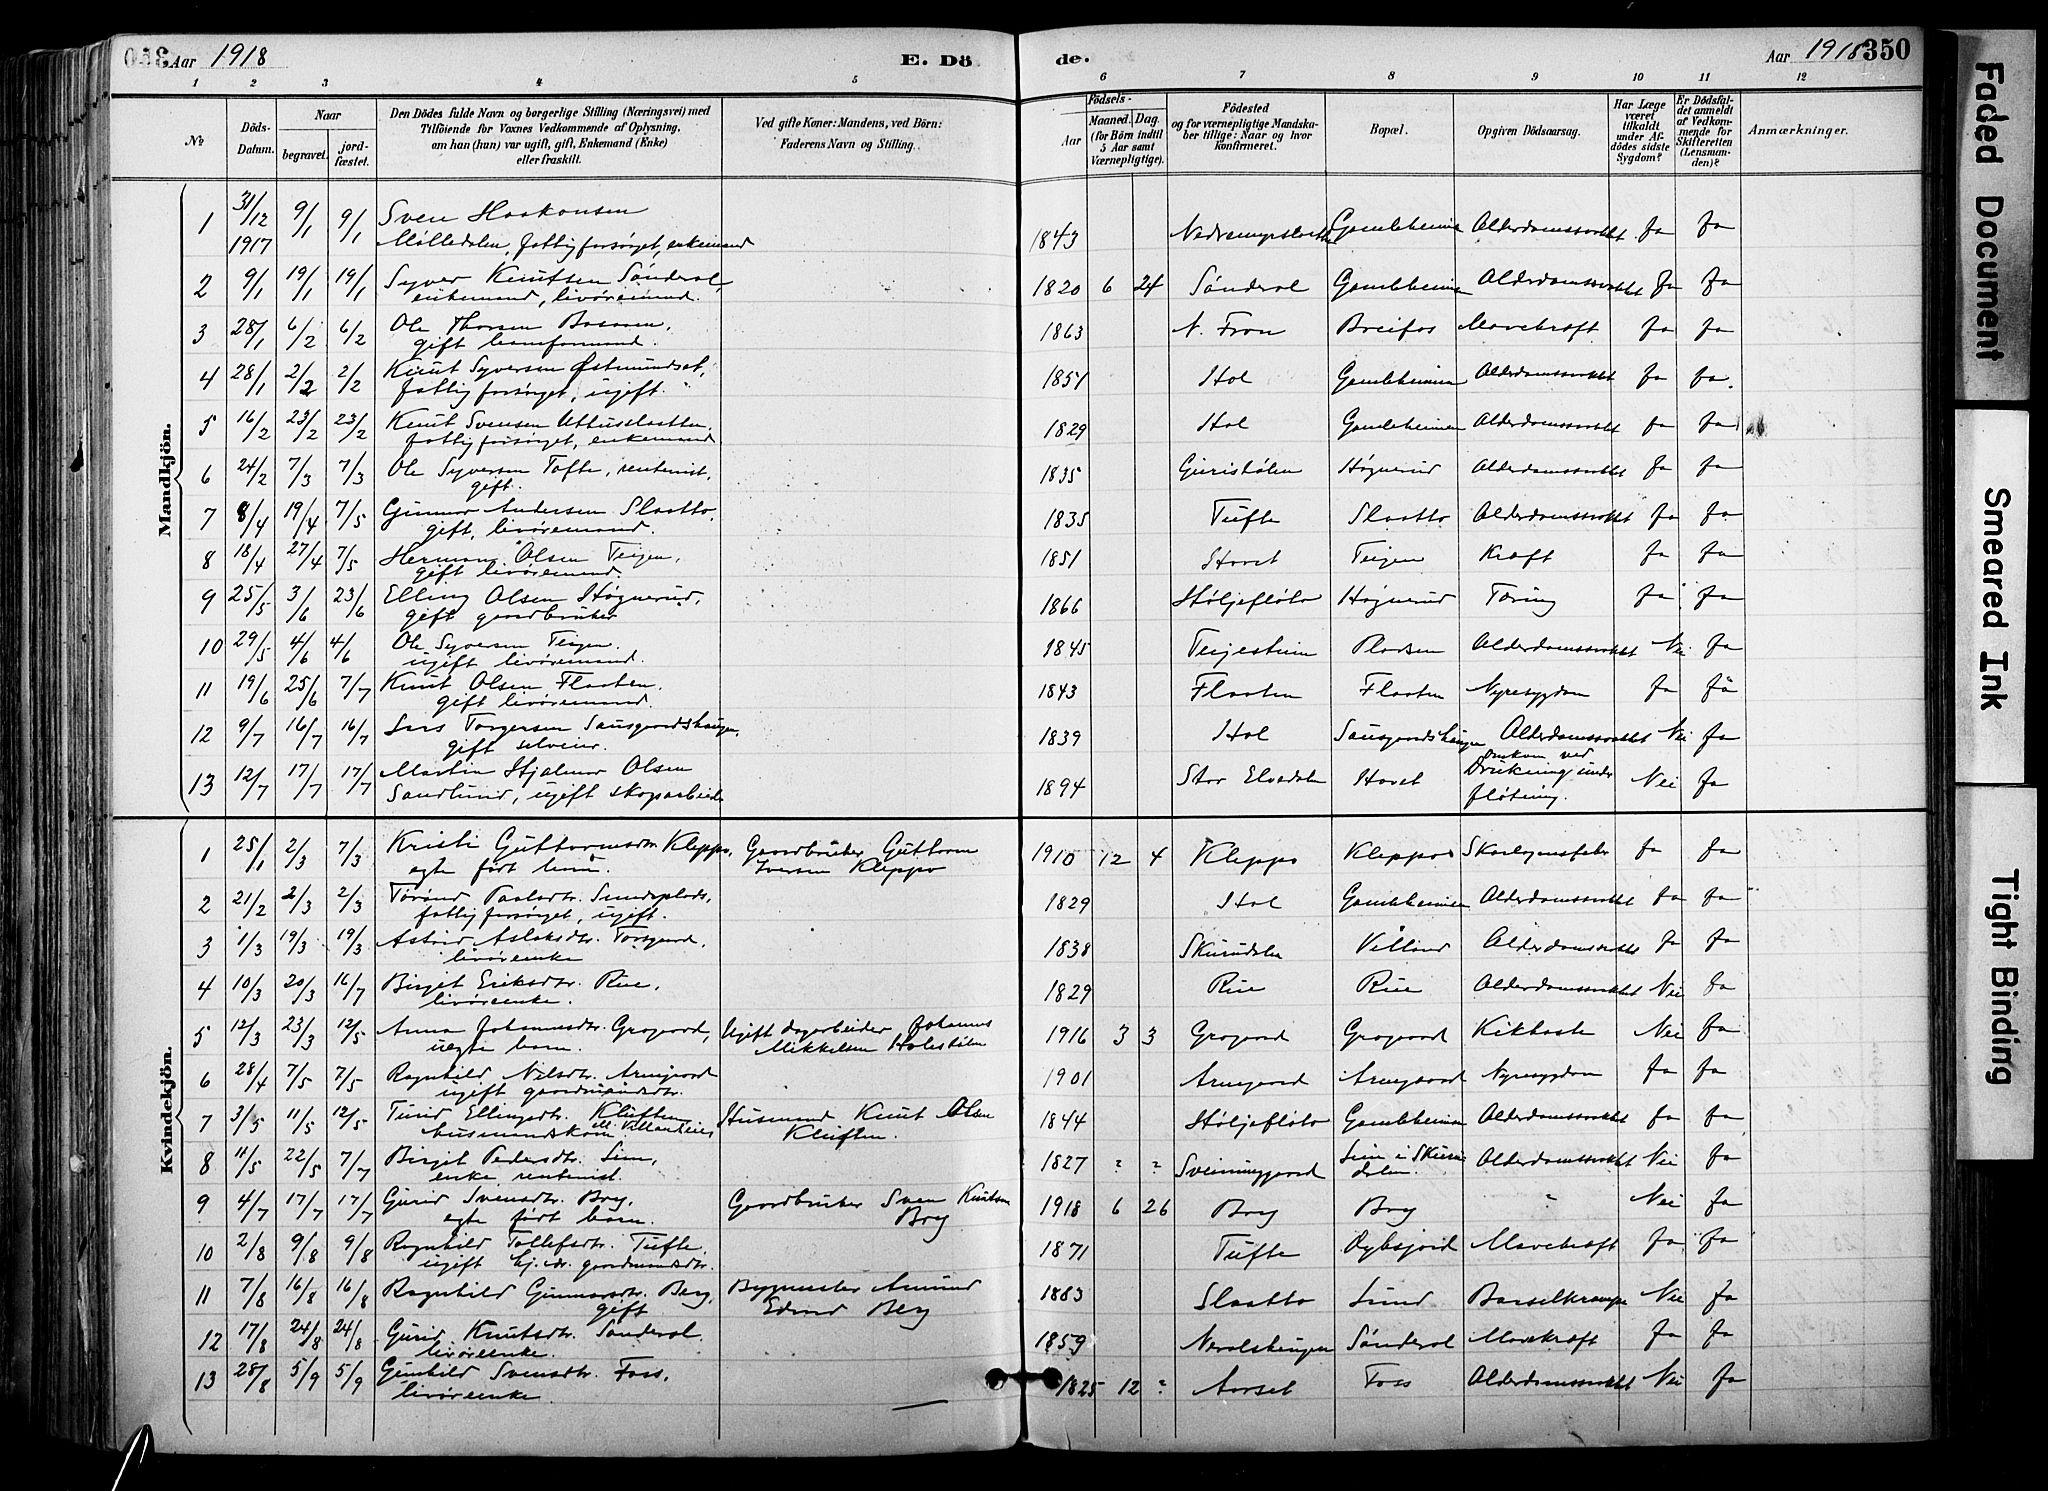 350 Aar 1918 E. Dö
de. Aar 1918 350
1 2 3 4 5 6 7 8 9 10 11 12
№
Döds-Datum.
Naar
begravet.
jord-fæstet.
Den Dödes fulde Navn og borgerlige Stilling (Næringsvei) med
Tilföiende for Voxnes Vedkommende af Oplysning,
om han (hun) var ugift, gift, Enkemand (Enke)
eller fraskilt.
Ved gifte Koner: Mandens, ved Börn:
Faderens Navn og Stilling.
Födsels-
Aar
Maaned. Dag.
(for Börn indtil
5 Aar samt
Værnepligtige).
Födested
og for værnepligtige Mandska-
ber tillige: Naar og hvor
konfirmeret.
Bopæl.
Opgiven Dödsaarsag.
Har Læge
været
tilkaldt
under Af-
dödes sidste
Sygdom?
Er Dödsfal-
det anmeldt
af Vedkom-
mende for
Skifteretten
(Lensman-
den)?
Anmærkninger.
Mandkjön.
1 31/12 1917 9/1 9/1 Sven Haakonsen
Mølledalen, fattigforsørget, enkemand 1843 Gamleheimen Alderdomssvakhet Ja Ja
2 9/1 19/1 19/1 Syver Knutsen Sønderol,
enkemand, livøremand. 1820 6 24 Sønderol Gamleheimen Alderdomssvakhet Ja Ja
3 28/1 6/2 6/2 Ole Thorsen
gift 1863 N. Fron Breifos Mavekræft Ja Ja
4 28/1 2/2 2/2 Knut Syversen Østmundset,
fattigforsørget, ugift. 1851 Hol Gamleheimen Alderdomssvakhet Ja Ja.
5 16/2 23/2 23/2 Knut Svensen
fattigforsørget, enkemand 1829 Hol Gamleheimen Alderdomssvakhet Ja Ja
6 24/2 7/3 7/3 Ole Syversen Tofte, rentenist,
gift. 1835 Guristølen Høgnerud Alderdomssvakhet Ja Ja
7 8/4 19/4 7/5 Gunnar Andersen Slaatto,
gift, livøremand. 1835 Tufte Slaatto Alderdomssvakhet Ja Ja
8 18/4 27/4 7/5 Herman Olsen Teigen,
gift livøremand. 1851 Hovet Teigen Kræft Ja Ja
9 25/5 3/6 23/6 Elling Olsen Høgnerud,
gift gaardbruker 1866 Høljefløto Høgnerud Tæring Ja Ja
10 29/5 4/6 4/6 Ole Syversen Teigen.
ugift livøremand. 1845 Plassen Alderdomssvakhet Nei Ja
11 19/6 25/6 7/7 Knut Olsen Flaaten.
gift livøremand. 1843 Flaaten Flaaten Nyresygdom Ja Ja
12 9/7 16/7 16/7 Lars Torgersen Sausgaardshaugen,
gift selveier. 1839 Hol Sausgaardshaugen Alderdomssvakhet Nei Ja
13 12/7 17/7 17/7 Martin Hjalmar Olsen
Sandlund, ugift skogarbeider 1894 Stor Elvedalen Hovet Omkom ved
Drukning under
fløtning. Nei Ja
Kvindekjön.
1 25/1 2/3 7/3 Kristi Guttormsdtr. Kleppo,
egte født barn. Gaardbruker Guttorm
Iversen Kleppo 1910 12 4 Kleppo Kleppo Skarlagensfeber Ja Ja
2 21/2 2/3 2/3
fattigforsørget, ugift. 1829 Hol Gamleheimen Alderdomssvakhet Ja Ja
3 1/3 19/3 19/3 Astrid Aslaksdtr. Torsgaard,
livøreenke 1838 Skurudalen Villand Alderdomssvakhet Ja Ja
4 10/3 20/3 16/7 Birgit Eriksdtr. Rue,
livøreenke. 1829 Rue Rue Alderdomssvakhet Nei Ja
5 12/3 23/3 12/5 Anna Johannesdtr. Grøgaard,
uegte barn. Ugift dagarbeider Johannes
Mikkelsen Holestølen 1916 3 3 Grøgaard Grøgaard Kikhoste Nei Ja
6 28/4 7/5 7/5 Ragnhild Nilsdtr. Arnegaard
ugift gaardmandsdtr. 1901 Arnegaard Arnegaard Nyresygdom Ja Ja
7 3/5 11/5 12/5 Turid Ellingsdtr. Kluften
husmandskone. Husmand Knut Olsen
Kluften. 1844 Høljefløto Gamleheimen Alderdomssvakhet Ja Ja
8 11/5 22/5 7/7 Birgit Pedersdtr. Lien,
enke, rentenist. 1827 ? ? Sveinunggaard Lien i Skuru-
dalen. Alderdomssvakhet Nei Ja
9 4/7 17/7 17/7 Gurid Svensdtr. Bry,
egte født barn. Gaardbruker Sven Knutsen
Bry 1918 6 26 Bry Bry " Nei Ja
10 2/8 9/8 9/8 Ragnhild Tollefsdtr. Tufte.
ugift gaardmandsdtr. 1871 Tufte Mavekræft Ja Ja
11 7/8 16/8 16/8 Ragnhild Gunnarsdtr. Berg,
gift Bygmester Amund
Edvard Berg 1883 Slaatto Lund Barselkrampe Nei Ja
12 17/8 24/8 24/8 Gurid Knutsdtr. Sønderol.
livøreenke. 1859 Neralshaugen Sønderol Mavekræft Ja Ja
13 28/8 5/9 5/9 Gunhild Svensdtr. Foss,
livøreenke. 1825 12 ? Aarset Foss Alderdomssvakhet Nei Ja
Faded Document
Smeared Ink
Tight Binding